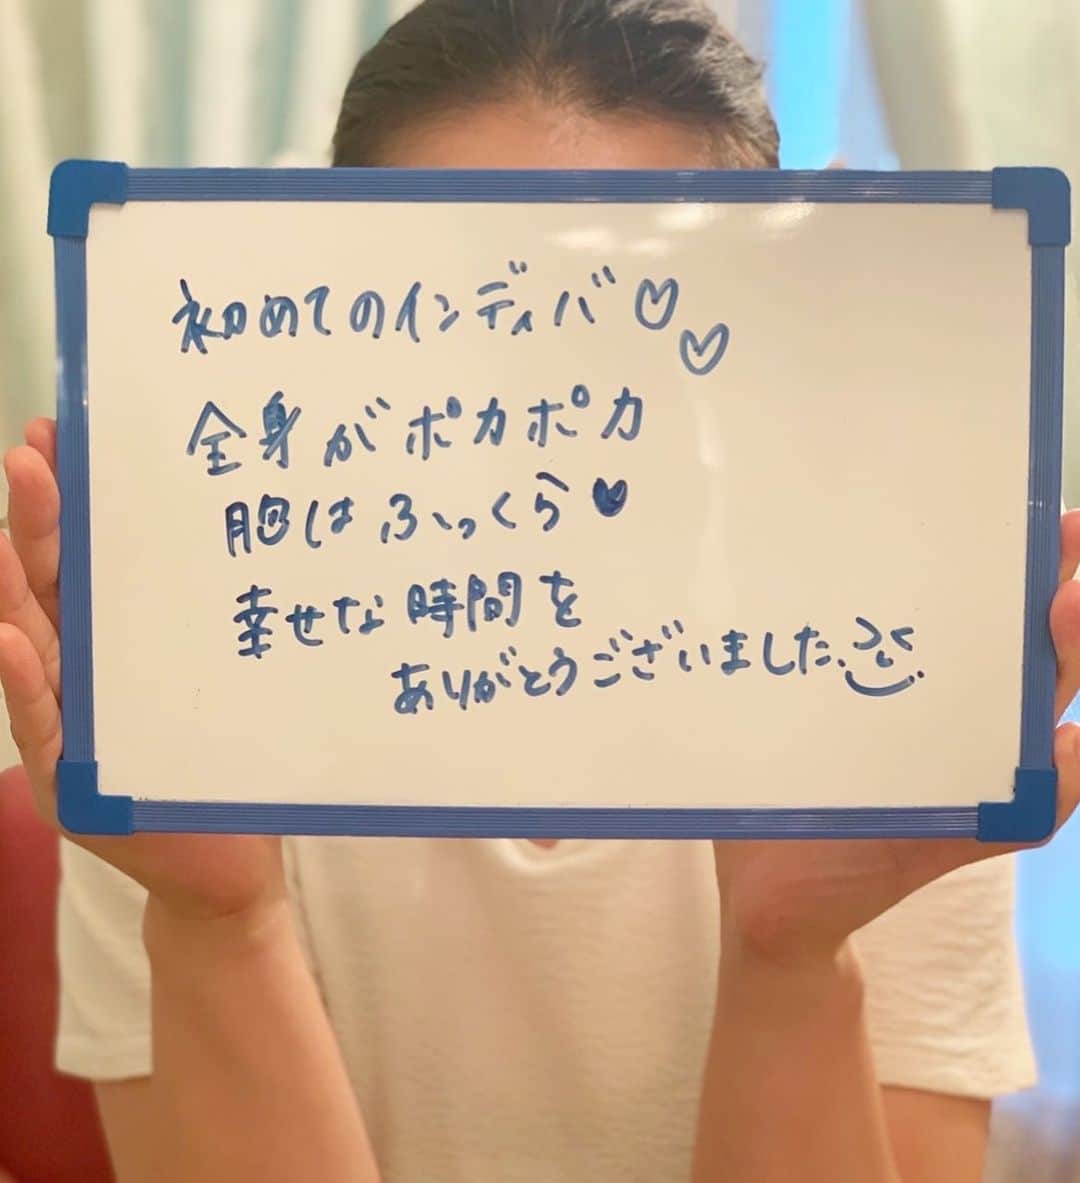 初めてのインディバ♡♡
全身がポカポカ
胸はふっくら♥
幸せな時間を
ありがとうございました。